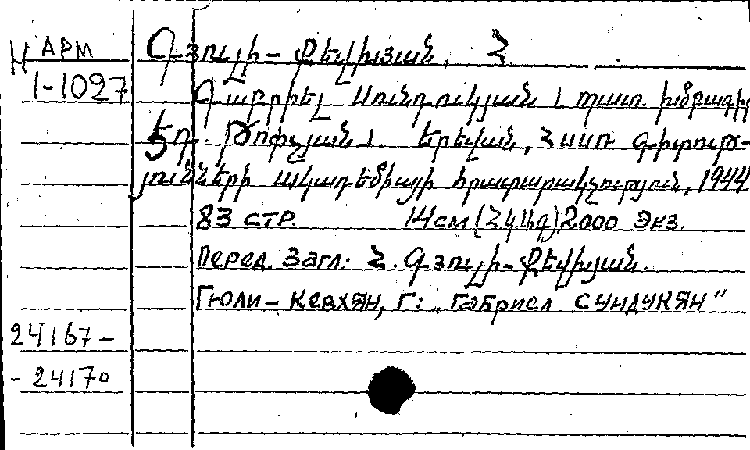 Н АРМ
1-1027
Գյուլի - Քեվխյան, Հ
Գաբրիել Սունդուկյան ( պատ. խմբագիր
Եդ. Թոփչյան ). Երեվան, ՀՍՍՌ գիտութ-
յունների ակադեմիայի հրատարակչություն, 1944
83 стр. 14 см (ՀԿԱԳ) 2000 экз.
Перед. Загл: Հ. Գյուլի - Քեվխյան.
Гюли - Кевхян, Г: „Габриел Сундукян"
24167 -
- 24170